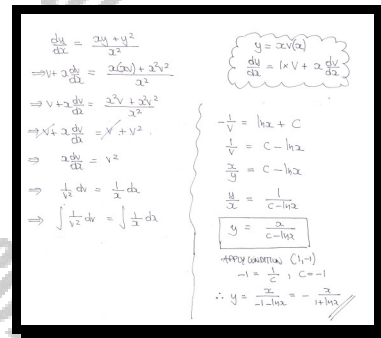 dy/dx = (xy + y²)/x²
⇒ v + x dv/dx = (x(xv) + x²v²)/x²
⇒ v + x dv/dx = (x²v + x²v²)/x²
⇒ v + x dv/dx = v + v²
⇒ x dv/dx = v²
⇒ 1/v² dv = 1/x dx
⇒ ∫ 1/v² dv = ∫ 1/x dx
y = xv(x)
dy/dx = 1×v + x dv/dx
-1/v = lnx + C
1/v = C - lnx
x/y = C - lnx
y/x = 1/(C-lnx)
y = x/(C-lnx)
APPLY CONDITION (1,-1)
-1 = 1/C, C=-1
∴ y = x/(-1-lnx) = - x/(1+lnx)